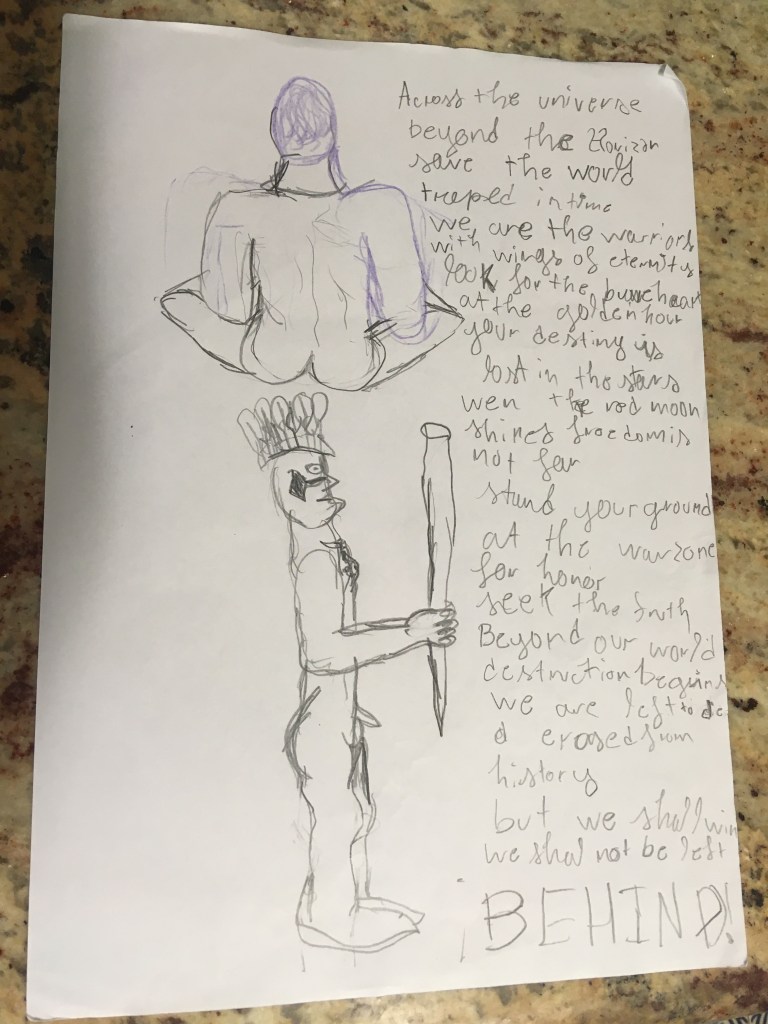 Across the universe
beyond the Horizon
save the world
traped in time
we are the warriors
with wings of eternity
look for the heart
at the golden hour
your destiny is
lost in the stars
wen the red moon
shines freedom is
not far
stand your ground
at the warzone
for honor
seek the truth
Beyond our world
destruction begins
we are left to die
d erased from
history
but we shall win
we shal not be left
¡BEHIND!